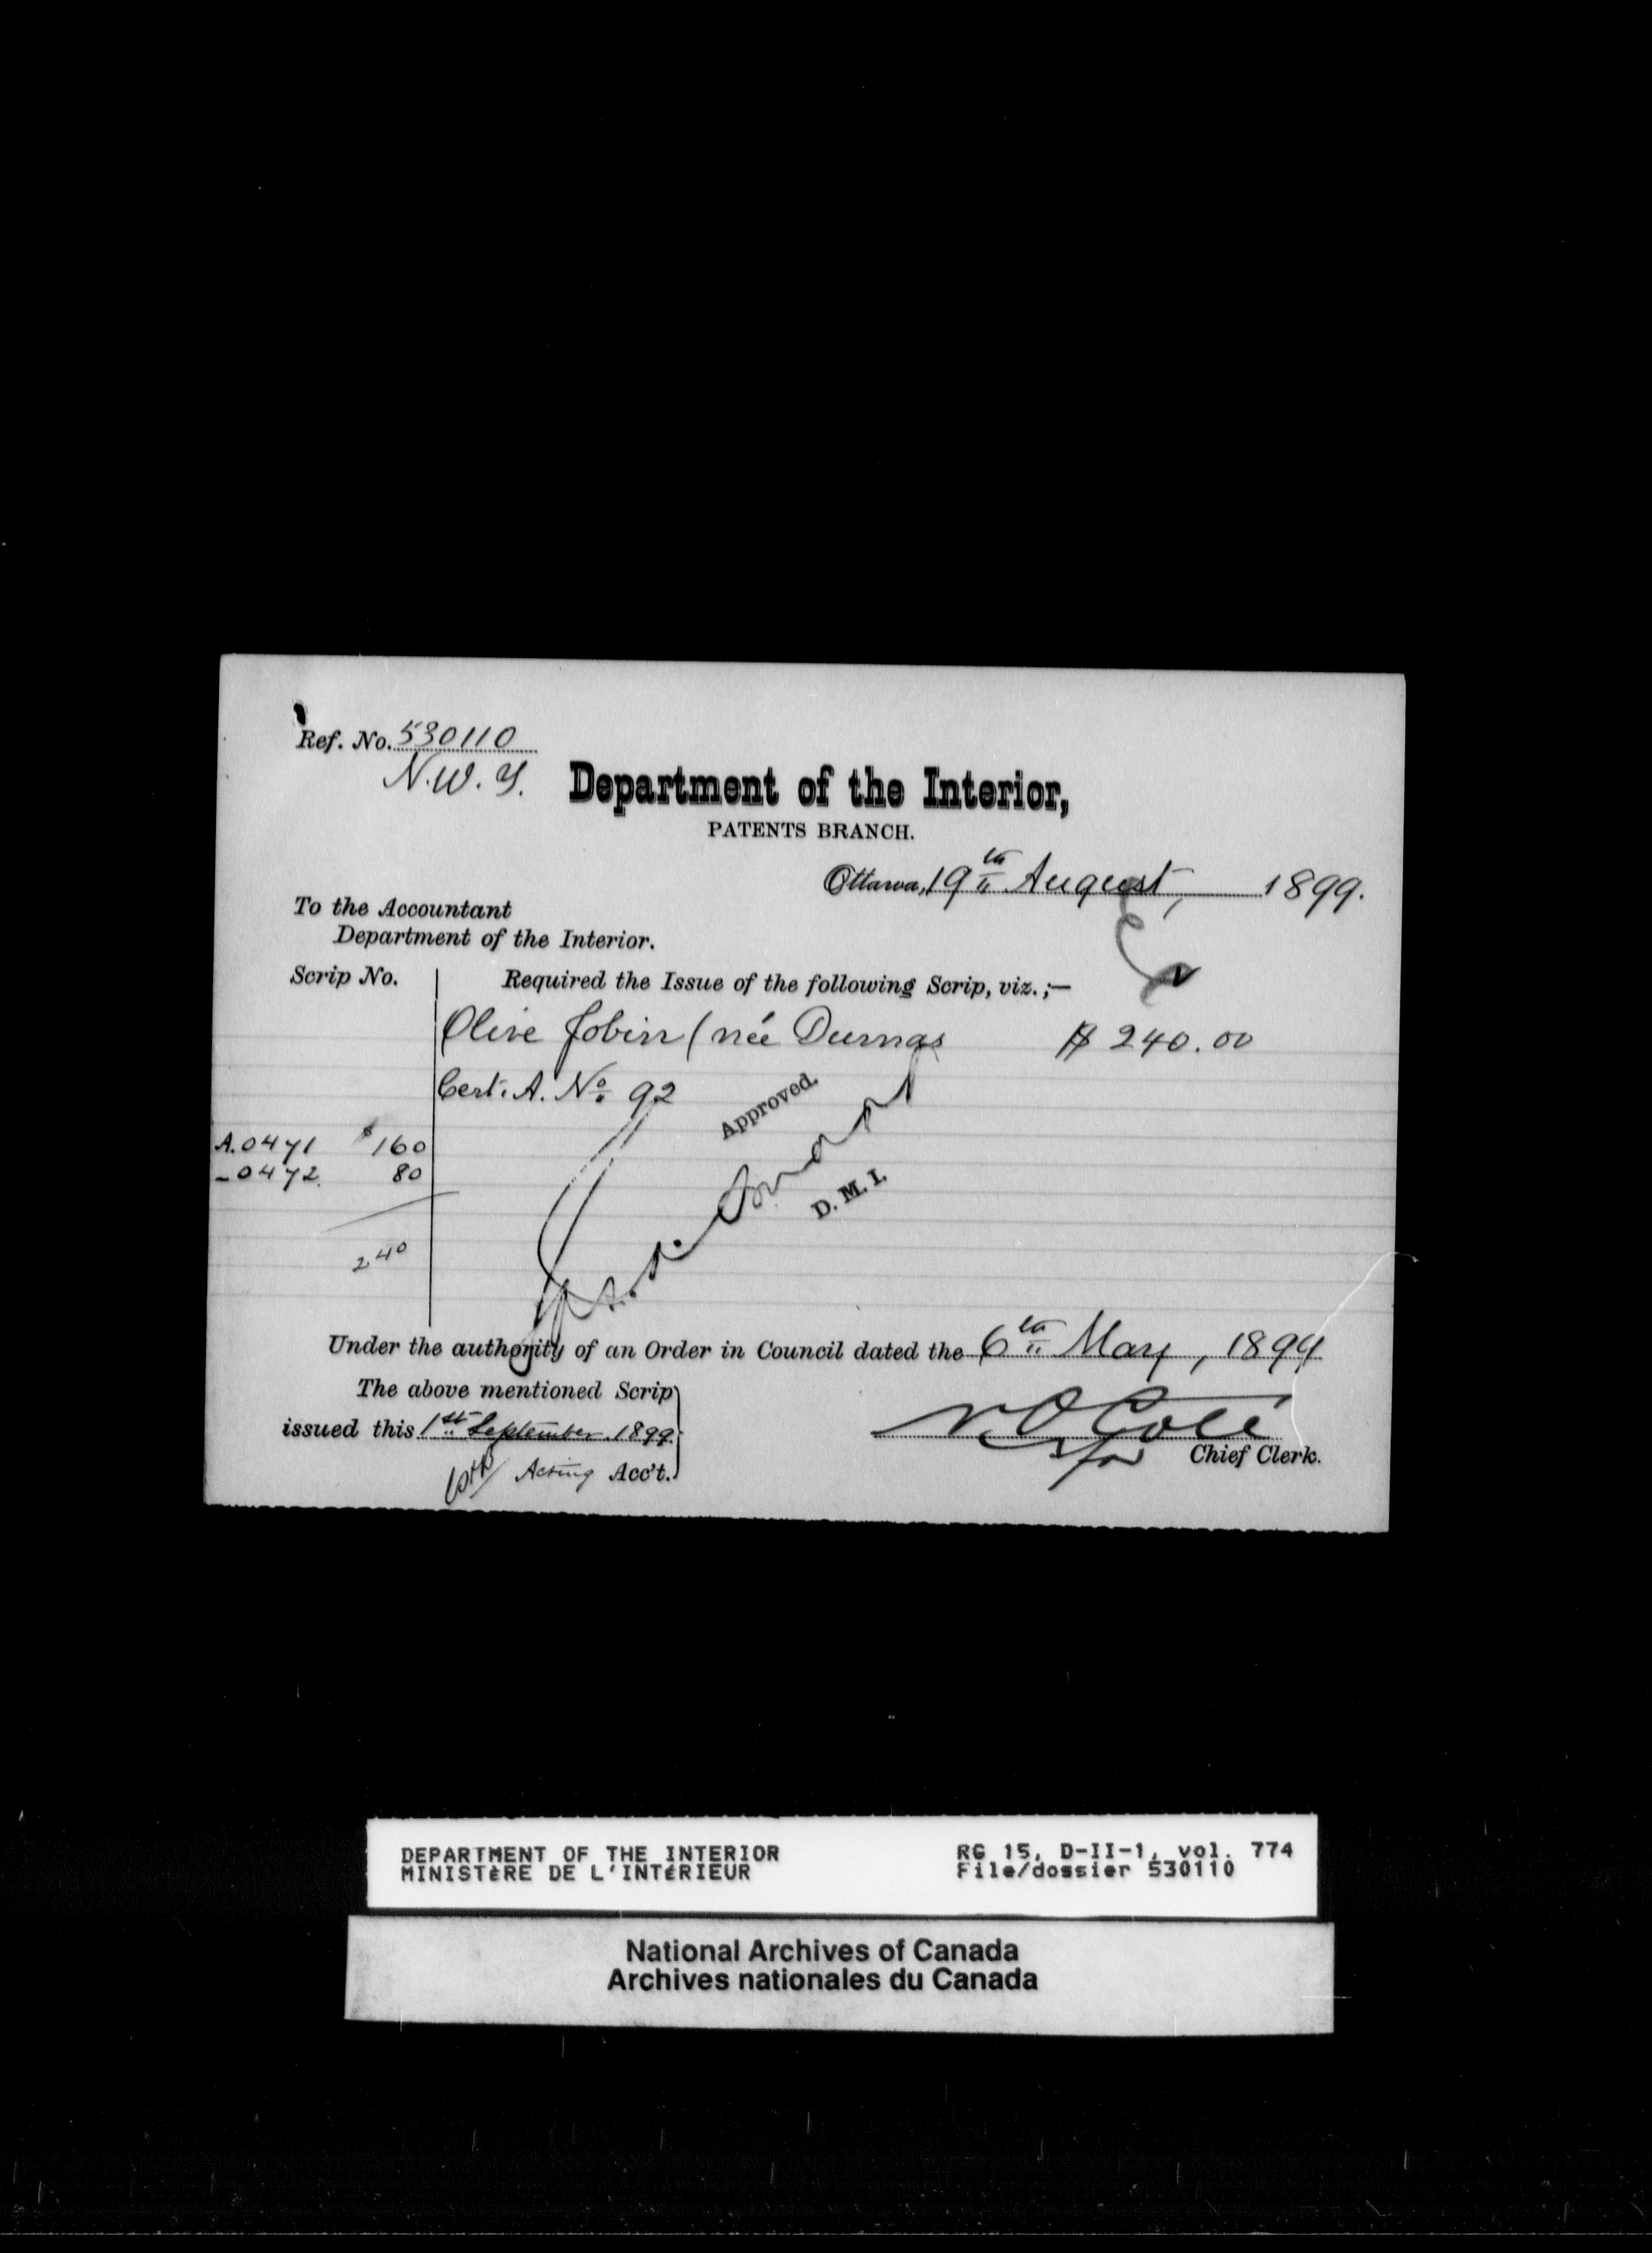 Ref. No. 530110
N.W.T.
Department of the Interior,
PATENTS BRANCH.
Ottawa, 19th August, 1899.
To the Accountant
Department of the Interior.
Scrip No.
Required the Issue of the following Scrip, viz.;—
Olive Jobin (née Dumas $ 240.00
Cert. A. No. 92
Approved.
A.0471 $160
- 0472. 80
D. M. I.
240
Under the authority of an Order in Council dated the 6th May, 1899
The above mentioned Scrip
issued this 1st September 1899
N O Coté
for Chief Clerk.
Acting Acc't.
DEPARTMENT OF THE INTERIOR RG 15, D-II-1, vol. 774
MINISTÈRE DE L'INTÉRIEUR File/dossier 530110
National Archives of Canada
Archives nationales du Canada